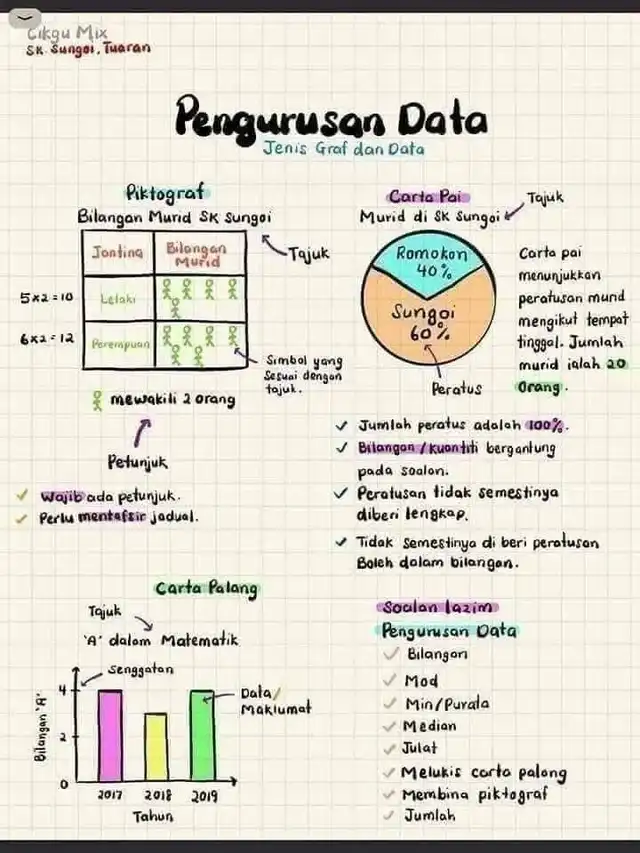 Cikgu Mix
SK Sungoi, Tuaran
Pengurusan Data
Jenis Graf dan Data
Piktograf
Bilangan Murid SK Sungoi
Tajuk
Jantina
Bilangan Murid
5x2=10
Lelaki
6x2=12
Perempuan
Simbol yang
sesuai dengan
tajuk.
mewakili 2 orang
Petunjuk
Wajib ada petunjuk.
Perlu mentafsir jadual.
Carta Pai
Tajuk
Murid di SK Sungoi
Romokon
40%
Sungoi
60%
Peratus
Carta pai
menunjukkan
peratusan murid
mengikut tempat
tinggal. Jumlah
murid ialah 20
Orang.
Jumlah peratus adalah 100%.
Bilangan/kuantiti bergantung
pada soalan.
Peratusan tidak semestinya
diberi lengkap.
Tidak semestinya di beri peratusan
Boleh dalam bilangan.
Carta Palang
Tajuk
'A' dalam Matematik
Senggatan
Bilangan 'A'
4
2
0
Data/
Maklumat
2017 2018 2019
Tahun
Soalan lazim
Pengurusan Data
Bilangan
Mod
Min/Purata
Median
Julat
Melukis carta palang
Membina piktograf
Jumlah